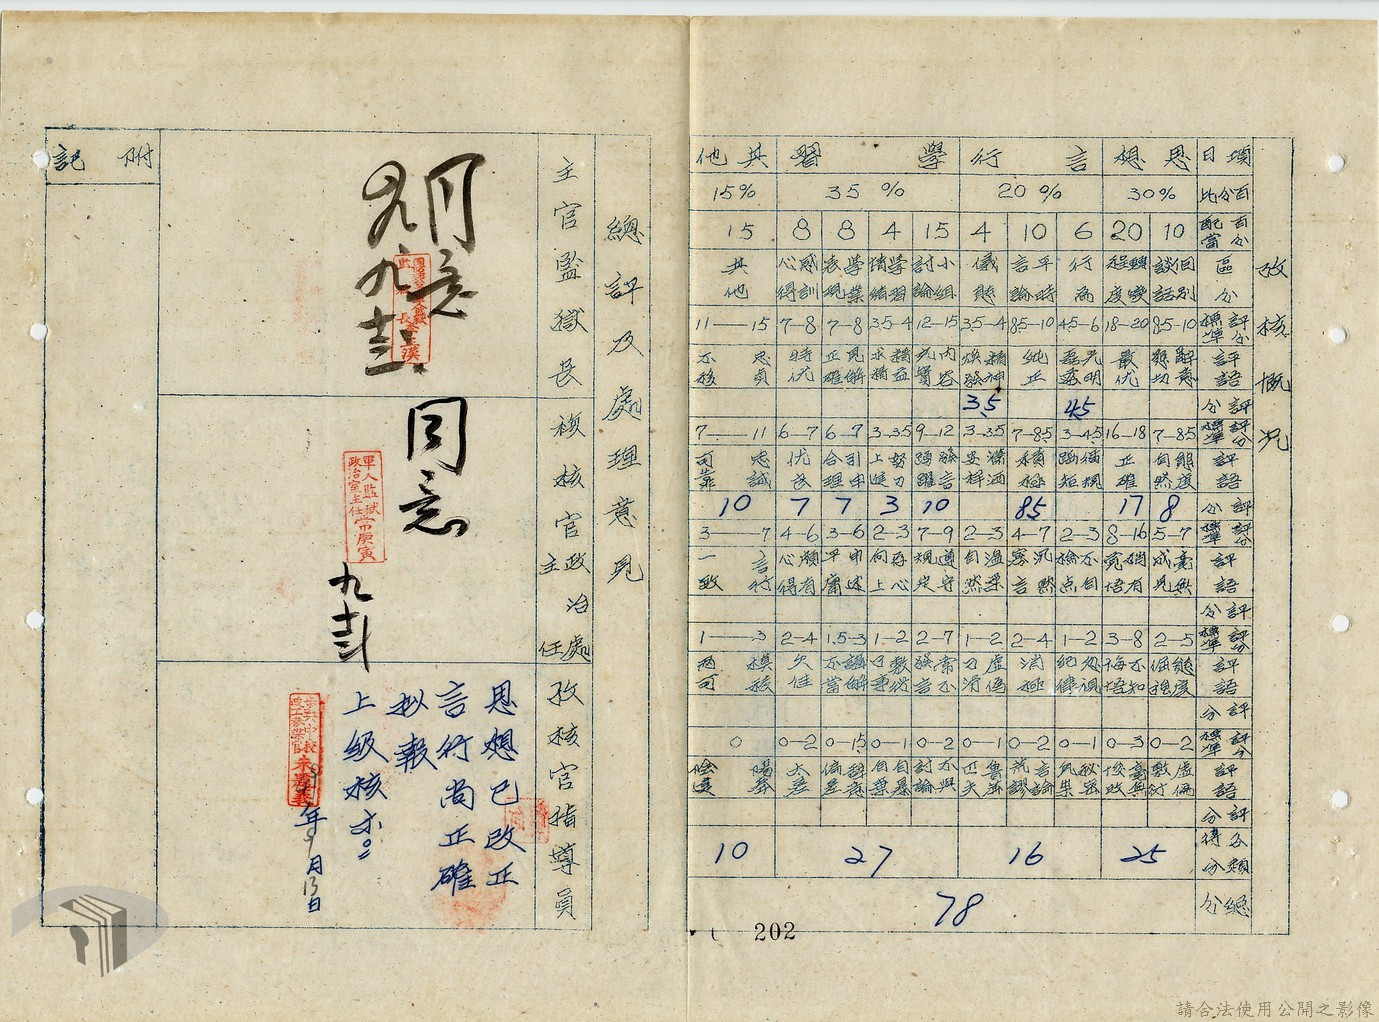 攷核概況
項目 思想 言行 學習 其他
百分比 30% 20% 35% 15%
百分配當 10 20 6 10 4 15 4 8 8 15
區分 個別談話 轉變程度 行為 平時言論 儀態 小組討論 學習情緒 學業表現 感訓心得 其他
評分標準 8.5-10 18-20 4.5-6 8.5-10 3.5-4 12-15 3.5-4 7-8 7-8 11—15
評語 解意懇切 最優 光明磊落 純正 精神煥發 內容充實 精益求精 見解正確 特優 忠貞不移
評分 4.5 3.5
評分標準 7-8.5 16-18 3-4.5 7-8.5 3-3.5 9-12 3-3.5 6-7 6-7 7—11
評語 態度自然 正確 循規蹈矩 積極 瀟洒安祥 發言踴躍 努力上進 引申合理 優良 忠誠可靠
評分 8 17 8.5 10 3 7 7 10
評分標準 5-7 8-16 2-3 4-7 2-3 7-9 2-3 3-6 4-6 3—7
評語 毫無成見 稍有覺悟 不自檢點 沉默寡言 溫柔自然 遵守規定 存心向上 申述平庸 頗有心得 言行一致
評分
評分標準 2-5 3-8 1-2 2-4 1-2 2-7 1-2 1.5-3 2-4 1—3
評語 態度倔強 不知悔悟 忽視紀律 消極 虛偽刁滑 常不發言 敷衍從事 誤解不當 欠佳 模稜兩可
評分
評分標準 0-2 0-3 0-1 0-2 0-1 0-2 0-1 0-1.5 0-2 0
評語 虛偽敷衍 毫無悛改 言論荒謬 魯莽 不與討論 自暴自棄 太差
評分
分類得分 25 16 27 10
總分 78
202
總評及處理意見
主官監獄長
複核官政治處主任
攷核官指導員
同意
九、十三
同意
軍人監獄政治室主任常庚寅
九、十三
思想已改正
言行尚正確
擬報
上級核示。
年9月13日
附記
請合法使用公開之影像